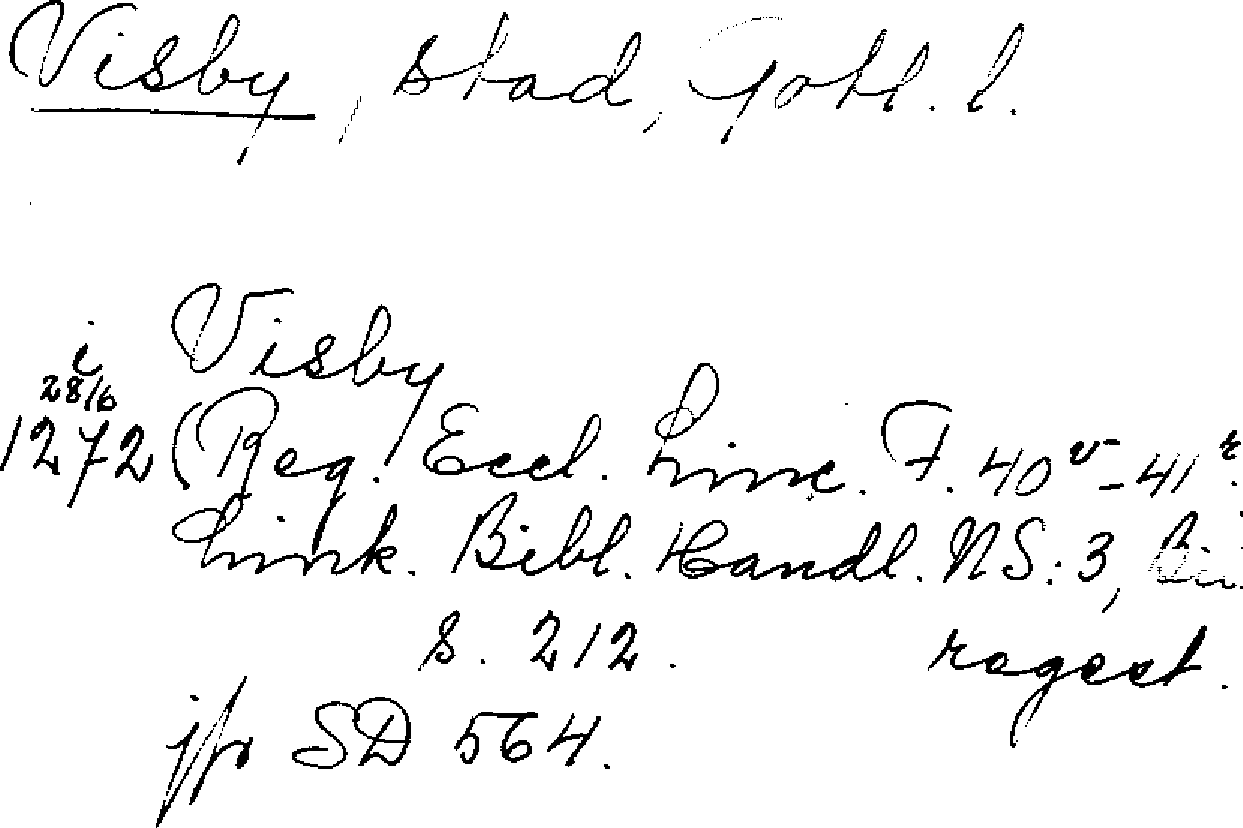 Visby, stad, Gotl. l.
i Visby
28/6
1272 (Reg. Eccl. Linc. F. 40v-41r.
Link. Bibl. Handl. NS: 3,
s. 212. regest.
jfr SD 564.